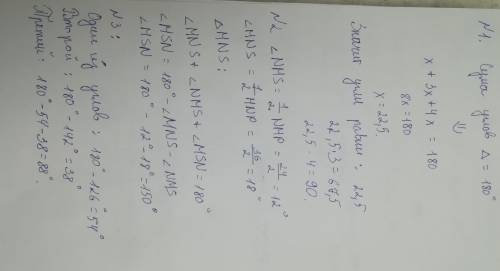 N1. Сума углов △ = 180°
⇓
x + 3x + 4x = 180
8x = 180
x = 22,5.
Значит углы равны: 22,5
22,5·3 = 67,5
22,5·4 = 90.
N2 ∠NMS = 1/2 NMP = 24/2 = 12°
∠MNS = 1/2 MNP = 36/2 = 18°
△MNS:
∠MNS + ∠NMS + ∠MSN = 180°
∠MSN = 180° - ∠MNS - ∠NMS
∠MSN = 180° - 12° - 18° = 150°
N3:
Один из углов: 180° - 126° = 54°
Второй: 180° - 142° = 38°
Третий: 180° - 54 - 38 = 88°.